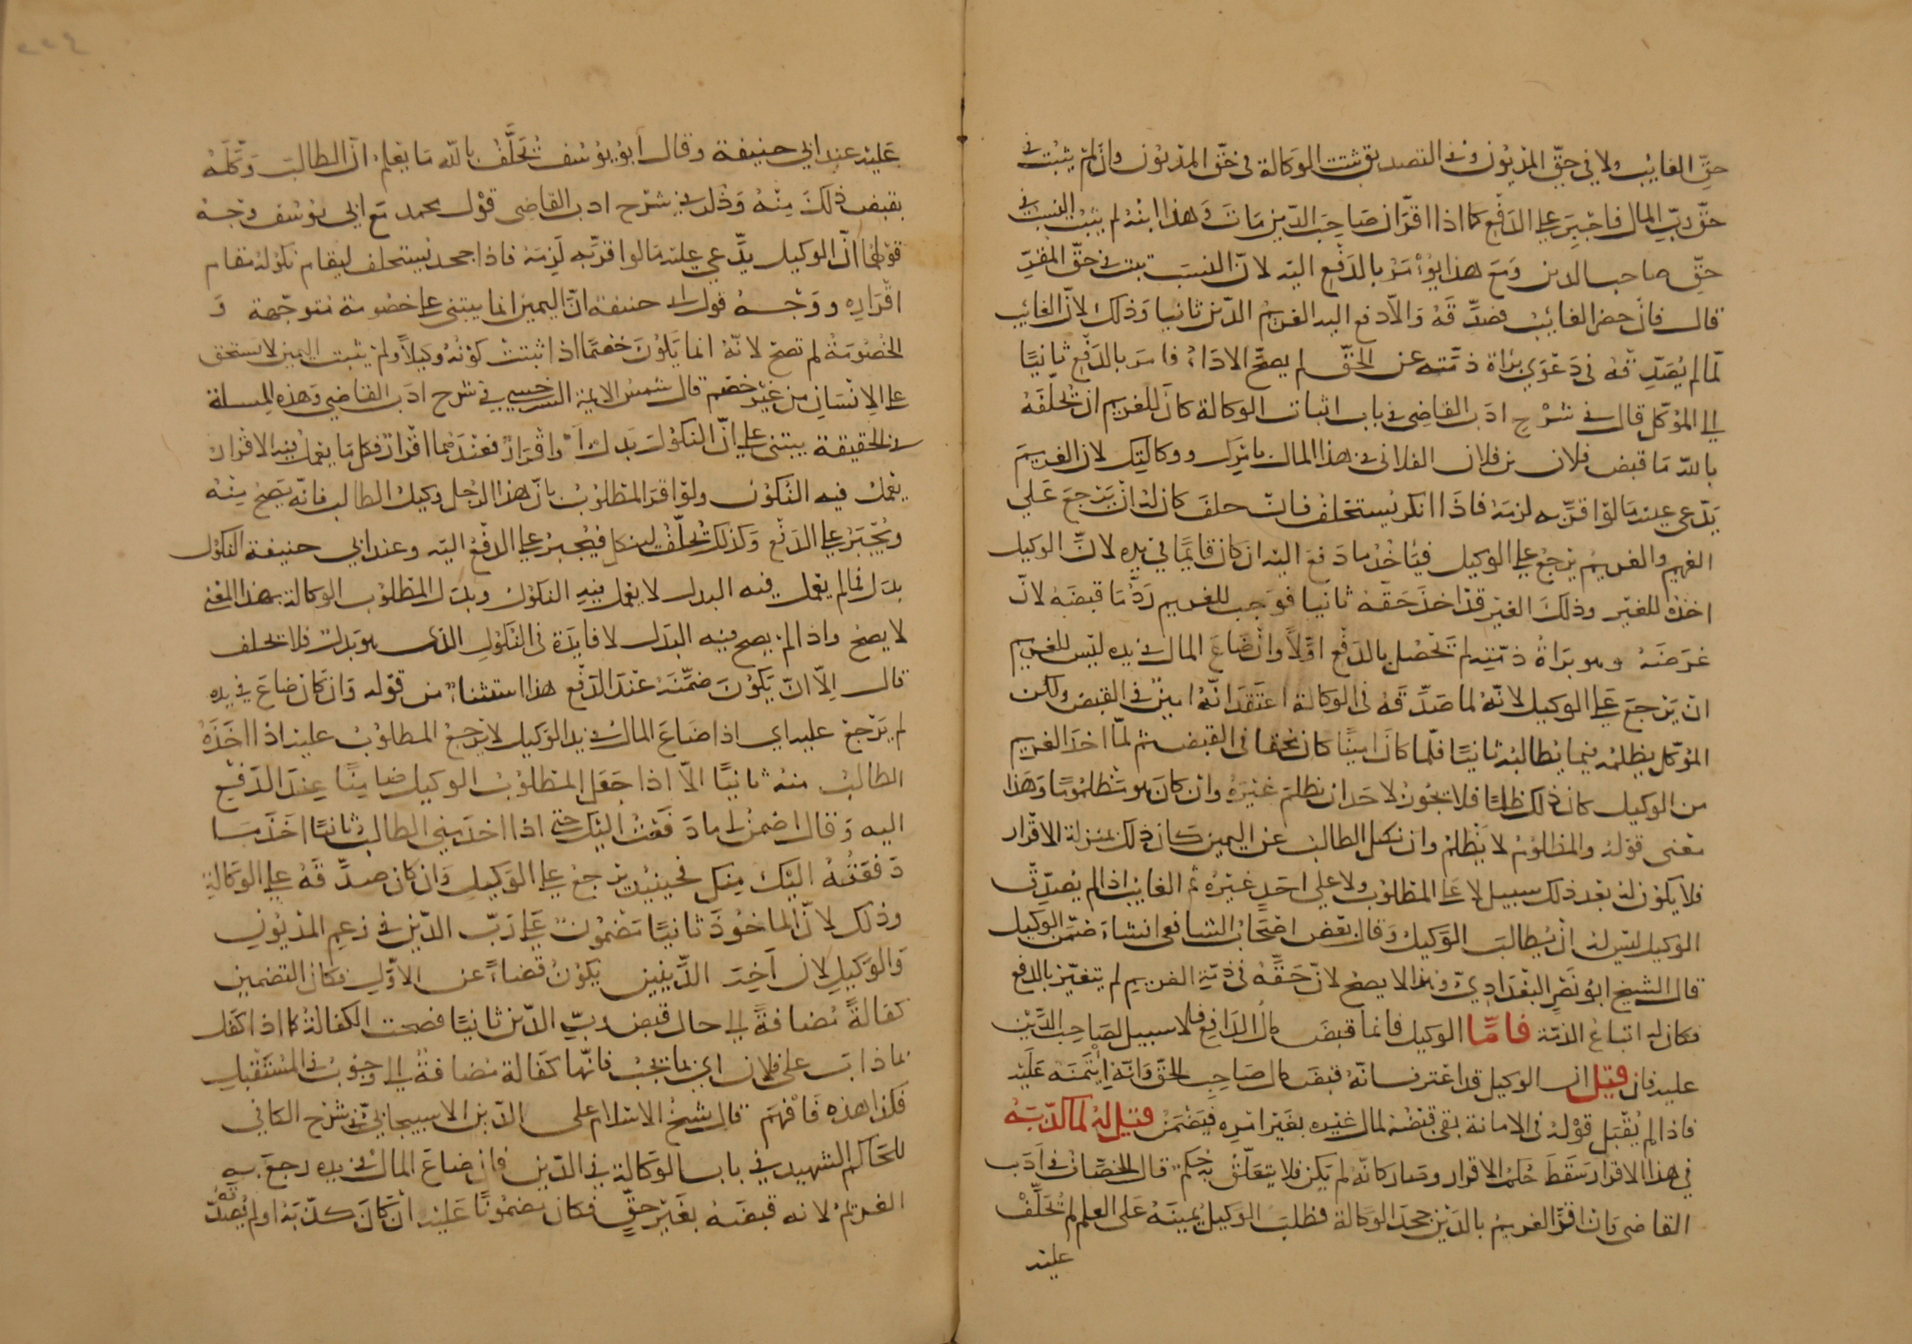 حقّ الغايب ولا في حقّ المديون وفي التصديق تثبت الوكالة في حقّ المديون وان لم يثبت في
حقّ ربّ المال فاجبر على الدفع كما اذا اقرّ ان صاحب الدين مات وهذا ابنه لم يثبت النسب في
حقّ صاحب الدين ومع هذا يؤمر بالدفع اليه لانّ النسب يثبت في حقّ المقرّ
قال فان حضر الغائب فصدّقه والّا دفع اليه الغريم الدّين ثانيا وذلك لانّ الغائب
لمّا لم يصدّقه في دعوى براة ذمّته عن الحقّ لم يصحّ الاداء فامر بالدفع ثانيًا
الى الموكّل قال في شرح ادب القاضي في باب اثبات الوكالة كان للغريم ان تحلّفه
بالله ما قبض فلان بن فلان الفلاني هذا المال ووكالتك لان الغريم
يدّعي عليه ما لو اقرّ به لزمه فاذا انكر يستحلف فان حلف كان له ان يرجع على
الغريم والغريم يرجع على الوكيل فياخذ ما دفع اليه ان كان قايمًا في يده لانّ الوكيل
اخذه للغير وذلك الغير قد اخذ حقّه ثانيا فوجب للغريم ردّ ما قبضه لانّ
غرضه وهو براة ذمّته لم تحصل بالدفع اوّلًا وان ضاع المال في يده ليس للغريم
ان يرجع على الوكيل لانّه لما صدّقه في الوكالة اعتقد انّه امين في القبض ولكن
الموكّل يظلمه فيما يطالبه ثانيًا فلّما كان امينًا كان محقا في القبض ثم لمّا اخذ الغريم
من الوكيل كان ذلك ظلمًا فلا يجوز لاحد ان يظلم غيره وان كان هو مظلومًا وهذا
معنى قوله والمظلوم لا يظلم وان نكل الطالب عن اليمين كان ذلك بمنزلة الاقرار
فلا يكون له بعد ذلك سبيل لا على المظلوب ولا على احد غيره ثم الغايب اذا لم يصدّق
الوكيل ليس له ان يطالب الوكيل وقال بعض اصحاب الشافعي ان شاء ضمّن الوكيل
قال الشيخ ابو نصر البغداديّ وهذا لا يصحّ لانّ حقّه في ذمّة الغريم لم يتغيّر بالدفع
فكان له اتباع الذمّة فامّا الوكيل فانما قبض مال الدافع فلا سبيل لصاحب الدّين
عليه فان قيل ان الوكيل قد اعترف انه قبض مال صاحب الحقّ وانّه ائتمنه عليه
فاذا لم يقبل قوله في الامانة بقي قبضه لمال غيره بغير امره فيضمن قيل له لما كذّبه
في هذا الاقرار سقط حكم الاقرار وصار كانّه لم يكن فلا يتعلّق به حكم قال الخصّاف في ادب
القاضي وان اقرّ الغريم بالدين وجحد الوكالة فطلب الوكيل يمينه على العلم لم تحلّف
عليه
عليه عند ابي حنيفة وقال ابو يوسف تحلّف بالله ما يعلم انّ الطالب وكّله
بقبض ذلك منه وذكر في شرح ادب القاضي قول محمد مع ابي يوسف وجه
قولهما انّ الوكيل يدّعي عليه ما لو اقرّ به لزمه فاذا جحد يستحلف ليقام نكوله مقام
اقراره ووجه قول ابي حنيفة انّ اليمين انما يبتنى على خصومة متوجّهة و
الخصومة لم تصحّ لانّه انما يكون خصمًا اذا ثبتت كونه وكيلًا ولم يثبت اليمين لا يستحق
على الانسان من غير خصم قال شمس الايمة السرخسي في شرح ادب القاضي وهذه المسلة
في الحقيقة يبتنى على انّ النكول بدل او اقرار فعندهما اقرار فكل ما يعمل فيه الاقرار
يعمل فيه النكول ولو اقرّ المطلوب بانّ هذا الرجل وكيل الطالب فانّه يصحّ منه
ويجبر على الدفع وكذلك تحلّف لينكل فيجبر على الدفع اليه وعند ابي حنيفة النكول
بدل فما لم يعمل فيه البدل لا يعمل فيه النكول وبدل المطلوب الوكالة بهذا المعنى
لا يصحّ واذا لم يصحّ فيه البدل لا فايدة في النكول الذي هو بدل فلا تحلف
قال الّا ان يكون ضمّنه عند الدفع هذا استثناء من قوله وان كان ضاع في يده
لم يرجع عليه اي اذا ضاع المال في يد الوكيل لا يرجع المطلوب عليه اذا اخذه
الطالب منه ثانيًا الّا اذا جعل المطلوب الوكيل ضامنًا عند الدفع
اليه وقال اضمن لي ما دفعت اليك حتى اذا اخذ مني الطالب ثانيًا اخذ ما
دفعته اليك منك فحينئذ يرجع على الوكيل وان كان صدّقه على الوكالة
وذلك لانّ الماخوذ ثانيًا مضمون على ربّ الدّين في زعم المديون
والوكيل لان آخر الدّينين يكون قضاءً عن الاوّل فكان التضمين
كفالةً مضافةً الى حال قبض ربّ الدّين ثانيًا فصحت الكفالة كما اذا كفل
بما ذاب على فلان اي بما يجب فانّها كفالة مضافة الى وجوب في المستقبل
فكذا هذه فافهم قال شيخ الاسلام على الدّين الاسبيجابيّ في شرح الكافي
للحاكم الشهيد في باب الوكالة في الدّين فان ضاع المال في يده رجع به
الغريم لانه قبضه بغير حقّ فكان مضمونًا عليه ان كان كذّبه او لم يصدّقه